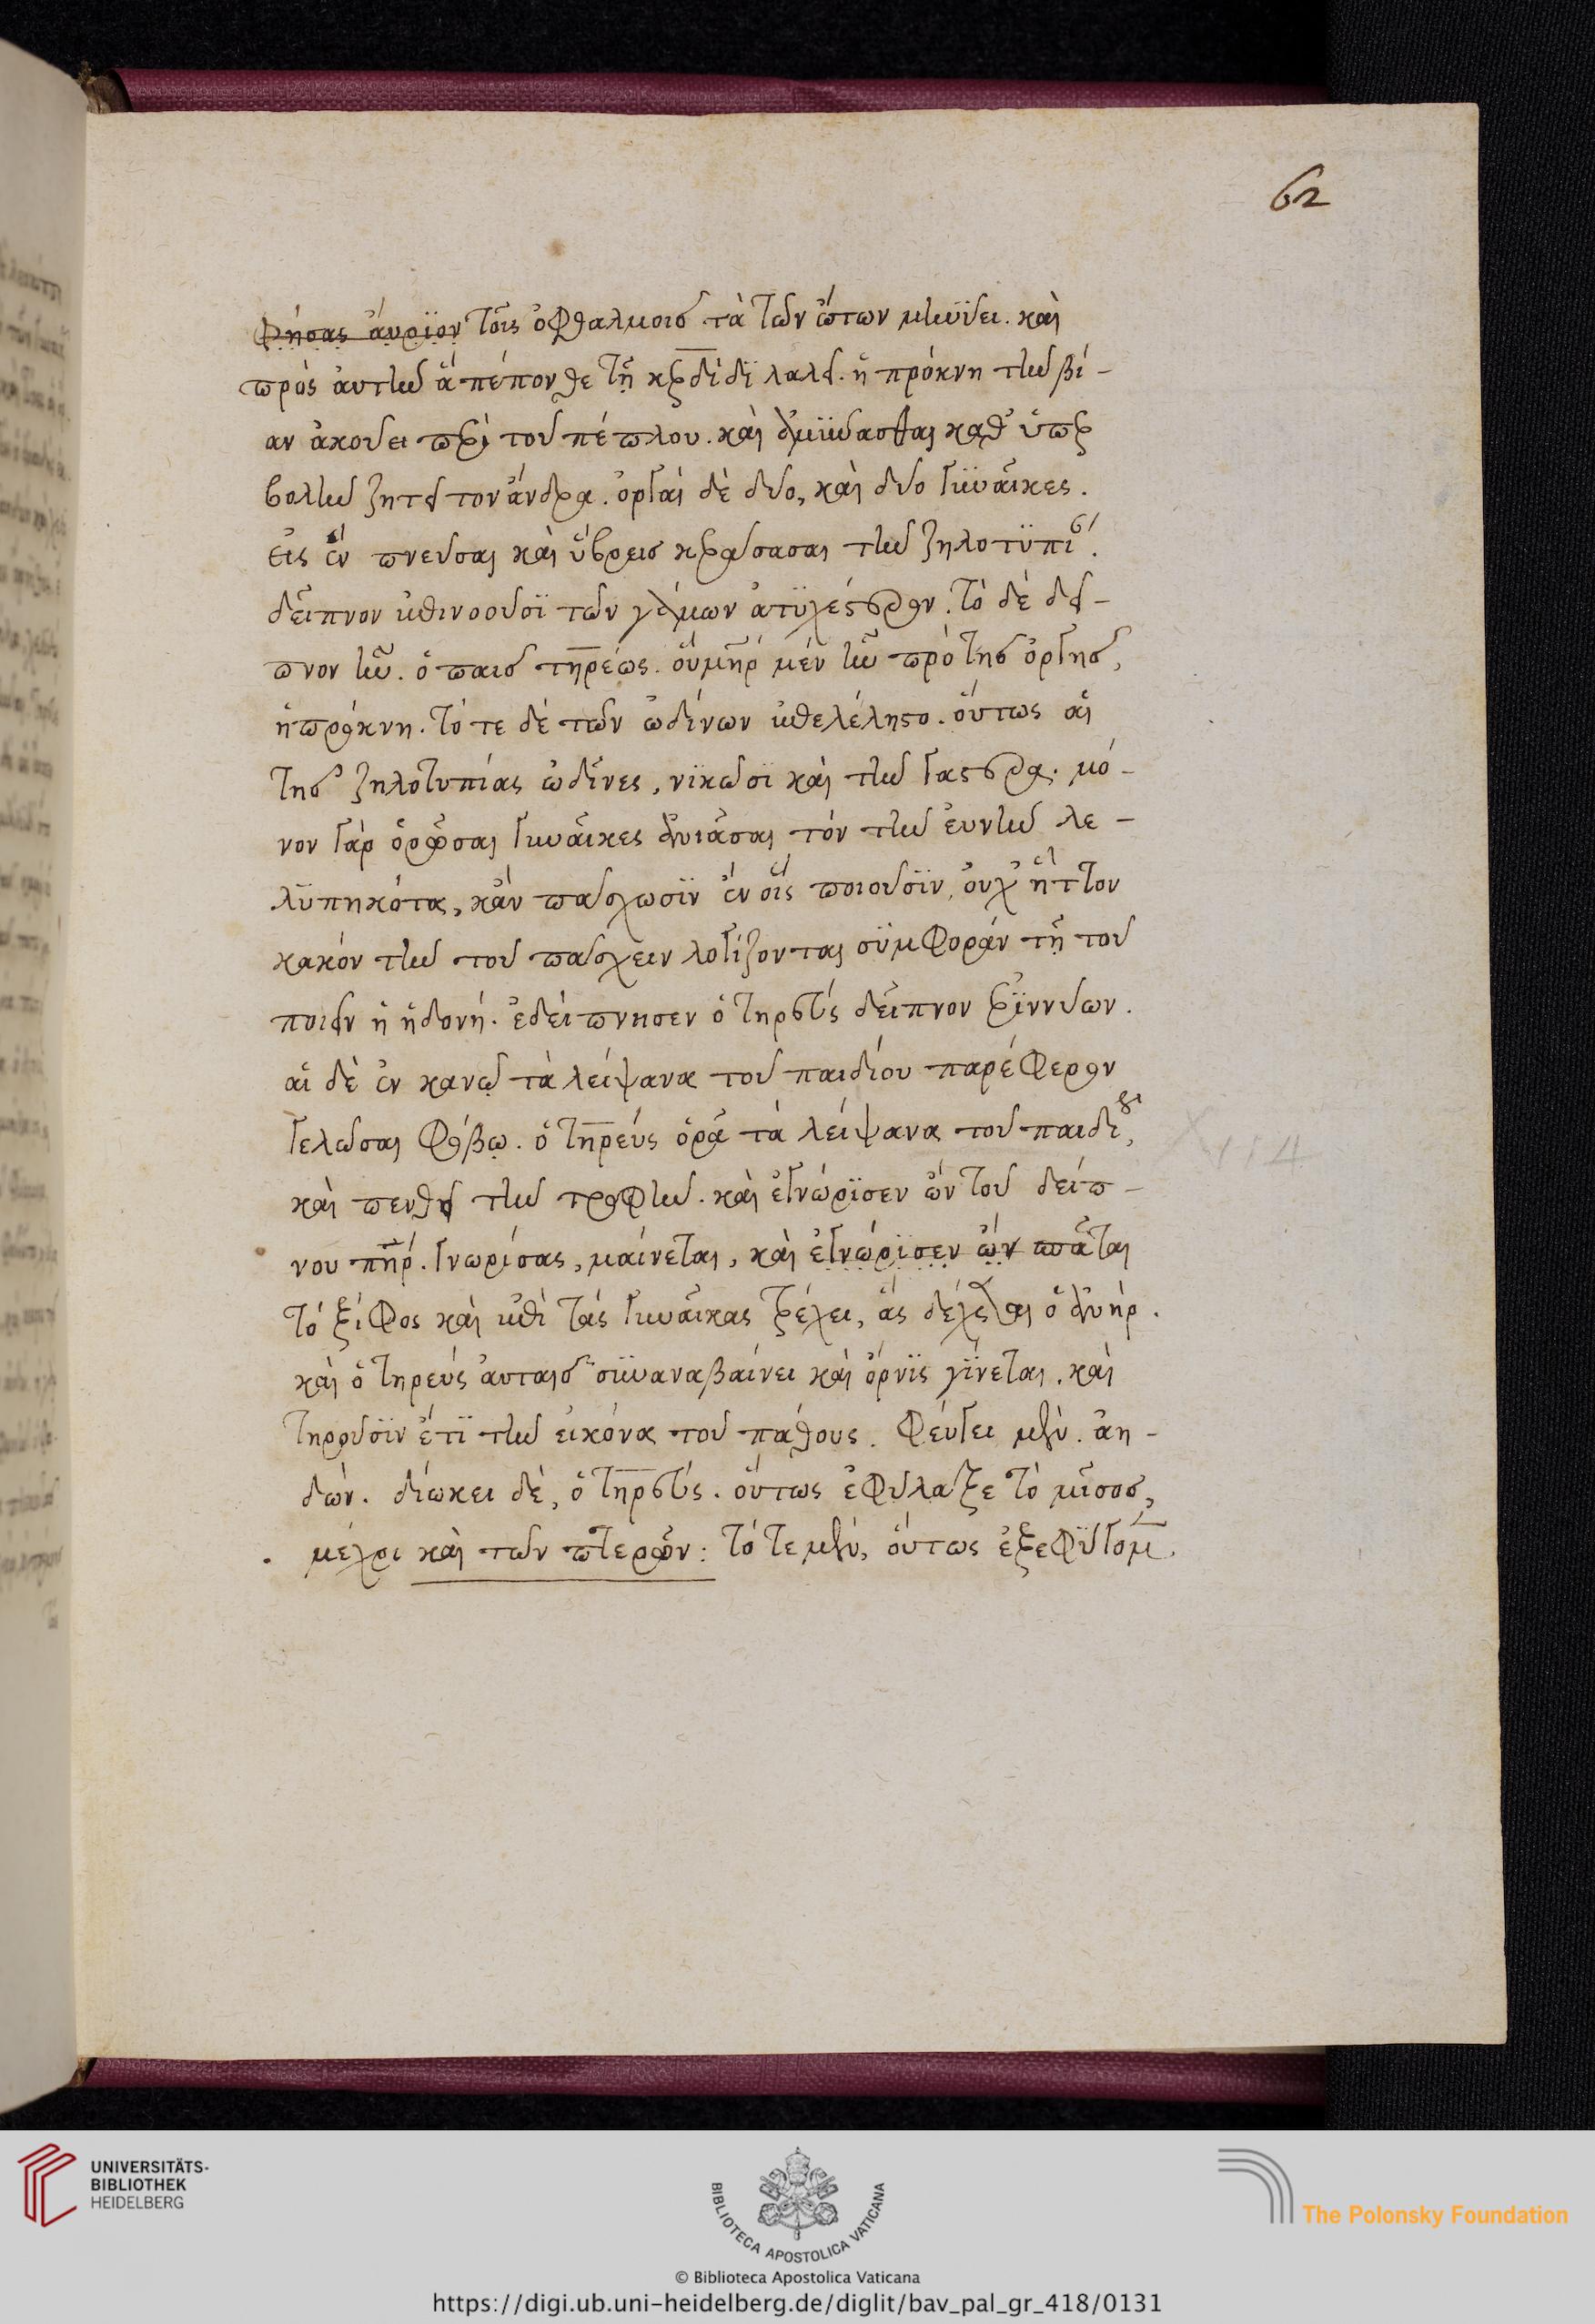 62
φήσας ἄυριον τοῖς ὀφθαλμοῖς τὰ τῶν ὤτων μηνύει. καὶ
πρὸς ἀυτὴν ἃ πέπονθε τῆ κερκίδι λαλεῖ. ἡ πρόκνη τὴν βί-
αν ἀκούει παρὰ τοῦ πέπλου. καὶ ἀμύνασθαι καθ' ὑπερ
βολὴν ζητεῖ τὸν ἄνδρα. ὀργαὶ δὲ δύο, καὶ δύο γυναῖκες.
εἰς ἓν πνεύσασαι καὶ ὕβρεις κεράσασαι τὴν ζηλοτυπία.
δεῖπνον ἐπινοοῦσι τῶν γάμων ἀτυχέστερον. τὸ δὲ δεῖ-
πνον ἦν. ὁ παῖς τηρέως. οὗ μηρ μὲν ἦν πρὸ τῆς ὀργῆς,
ἡ πρόκνη. τότε δὲ τῶν ὠδίνων ἐπελέληστο. οὕτως αἱ
τῆς ζηλοτυπίας ὠδῖνες, νικῶσι καὶ τὴν γαστέρα. μό-
νον γὰρ ὁρῶσαι γυναῖκες ἀνιᾶσαι τὸν τὴν ἐυνὴν λε-
λυπηκότα, κἂν πάσχωσιν ἐν οἷς ποιοῦσιν, οὐχ ἧττον
κακὸν τὴν τοῦ πάσχειν λογίζονται συμφορὰν τῆ τοῦ
ποιεῖν ἡ ἡδονή. ἐδείπνησεν ὁ τηρεὺς δεῖπνον ἐριννύων.
αἱ δὲ ἐν κανῷ τὰ λείψανα τοῦ παιδίου παρέφερον
γελῶσαι φόβῳ. ὁ τηρεύς ὁρᾶ τὰ λείψανα τοῦ παιδίου,
καὶ πενθεῖ τὴν τροφὴν. καὶ ἐγνώρισεν ὢν τοῦ δείπ-
νου πηρ. γνωρίσας, μαίνεται, καὶ ἐγνώρισεν ὢν σπᾶται
τὸ ξίφος καὶ ἐπὶ τὰς γυναῖκας τρέχει, ἃς δέχεται ὁ ἀήρ.
καὶ ὁ τηρεύς ἀυταῖς συναναβαίνει καὶ ὄρνις γίνεται. καὶ
τηροῦσιν ἔτι τὴν εἰκόνα τοῦ πάθους. φεύγει μὲν. ἀη-
δών. διώκει δὲ, ὁ τηρεύς. οὕτως ἐφύλαξε τὸ μῖσος,
μέχρι καὶ τῶν πτερῶν: τότε μὲν, οὕτως ἐξεφύγομ
UNIVERSITÄTS-
BIBLIOTHEK
HEIDELBERG
BIBLIOTECA APOSTOLICA VATICANA
© Biblioteca Apostolica Vaticana
The Polonsky Foundation
https://digi.ub.uni-heidelberg.de/diglit/bav_pal_gr_418/0131